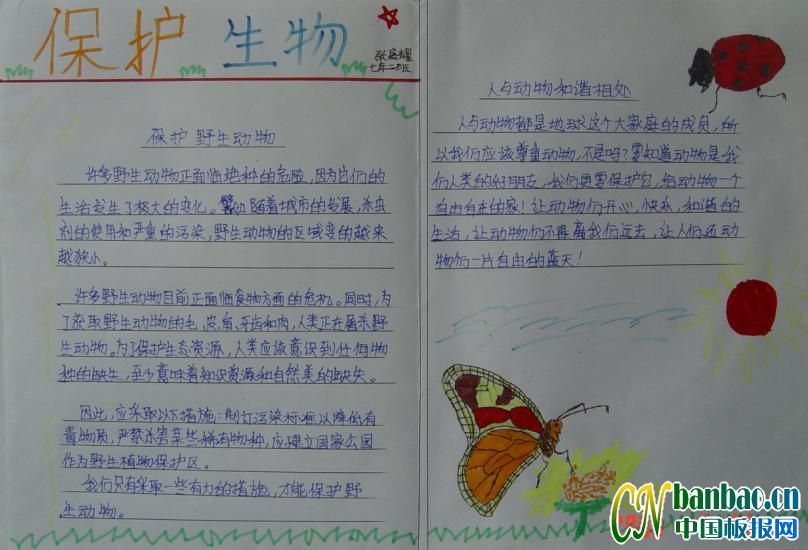 保护 生物
七年二班
保护 野生动物
许多野生动物正面临绝种的危险，因为它们的
生活发生了极大的变化。譬如随着城市的发展，杀虫
剂的使用和严重的污染，野生动物的区域变的越来
越狭小。
许多野生动物目前正面临食物方面的危机。同时，为
了获取野生动物的毛、皮、角、牙齿和肉，人类正在屠杀野
生动物。为了保护生态资源，人类应该意识到任何物
种的缺失，至少意味着知识资源和自然美的缺失。
因此，应采取以下措施：制订污染标准以降低有
毒物质，严禁杀害某些稀有物种，应建立国家公园
作为野生植物保护区。
我们只有采取一些有力的措施，才能保护野
生动物。
人与动物和谐相处
人与动物都是地球这个大家庭的成员，所
以我们应该尊重动物，不是吗？要知道动物是我
们人类的好朋友，我们更要保护它，给动物一个
自由自在的家！让动物们开心，快乐，和谐的
生活，让动物们不再离我们远去，让人们还动
物们一片自由的蓝天！
CNbanbao.cn
中国板报网